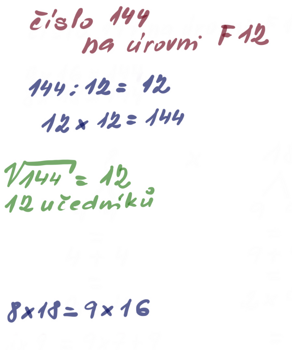 číslo 144
na úrovni F12
144 : 12 = 12
12 × 12 = 144
√144 = 12
12 učedníků
8×18 = 9×16